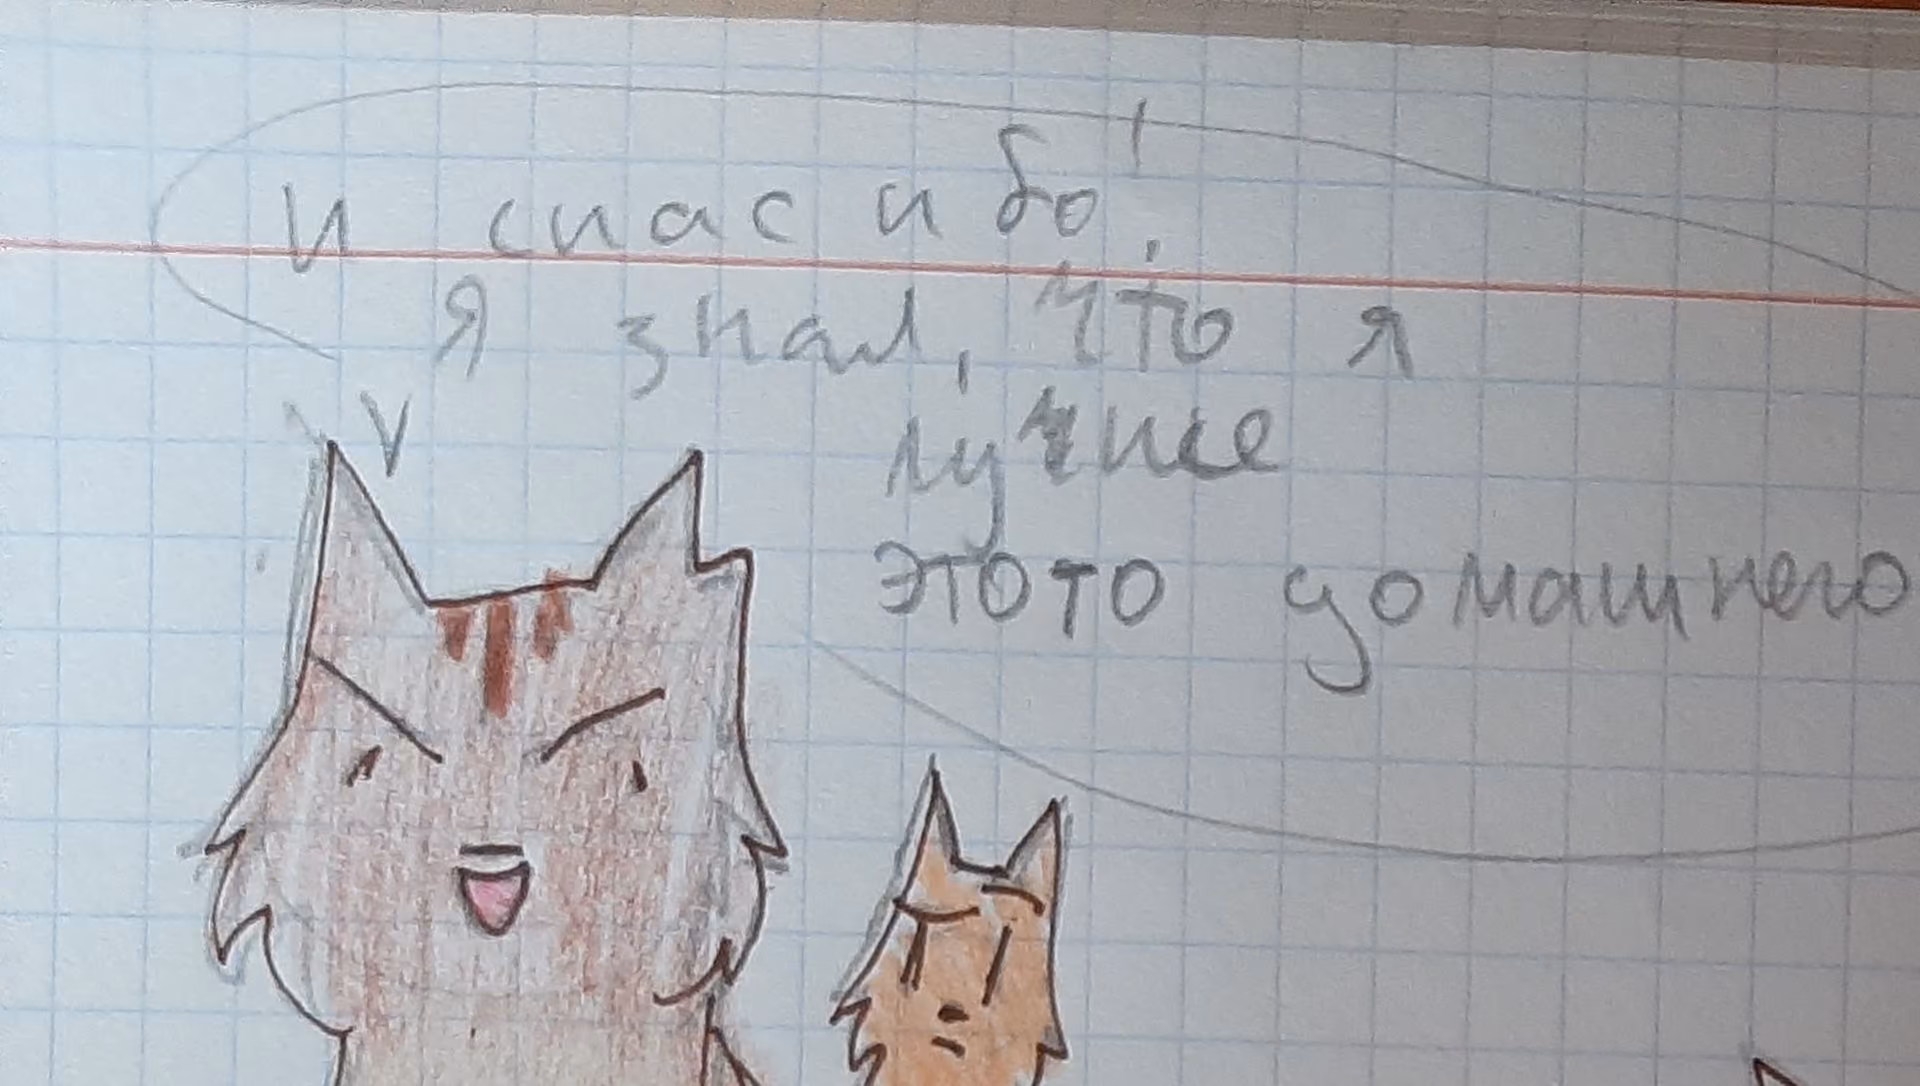 и спасибо!
я знал, что я
лучше
этото домашнего